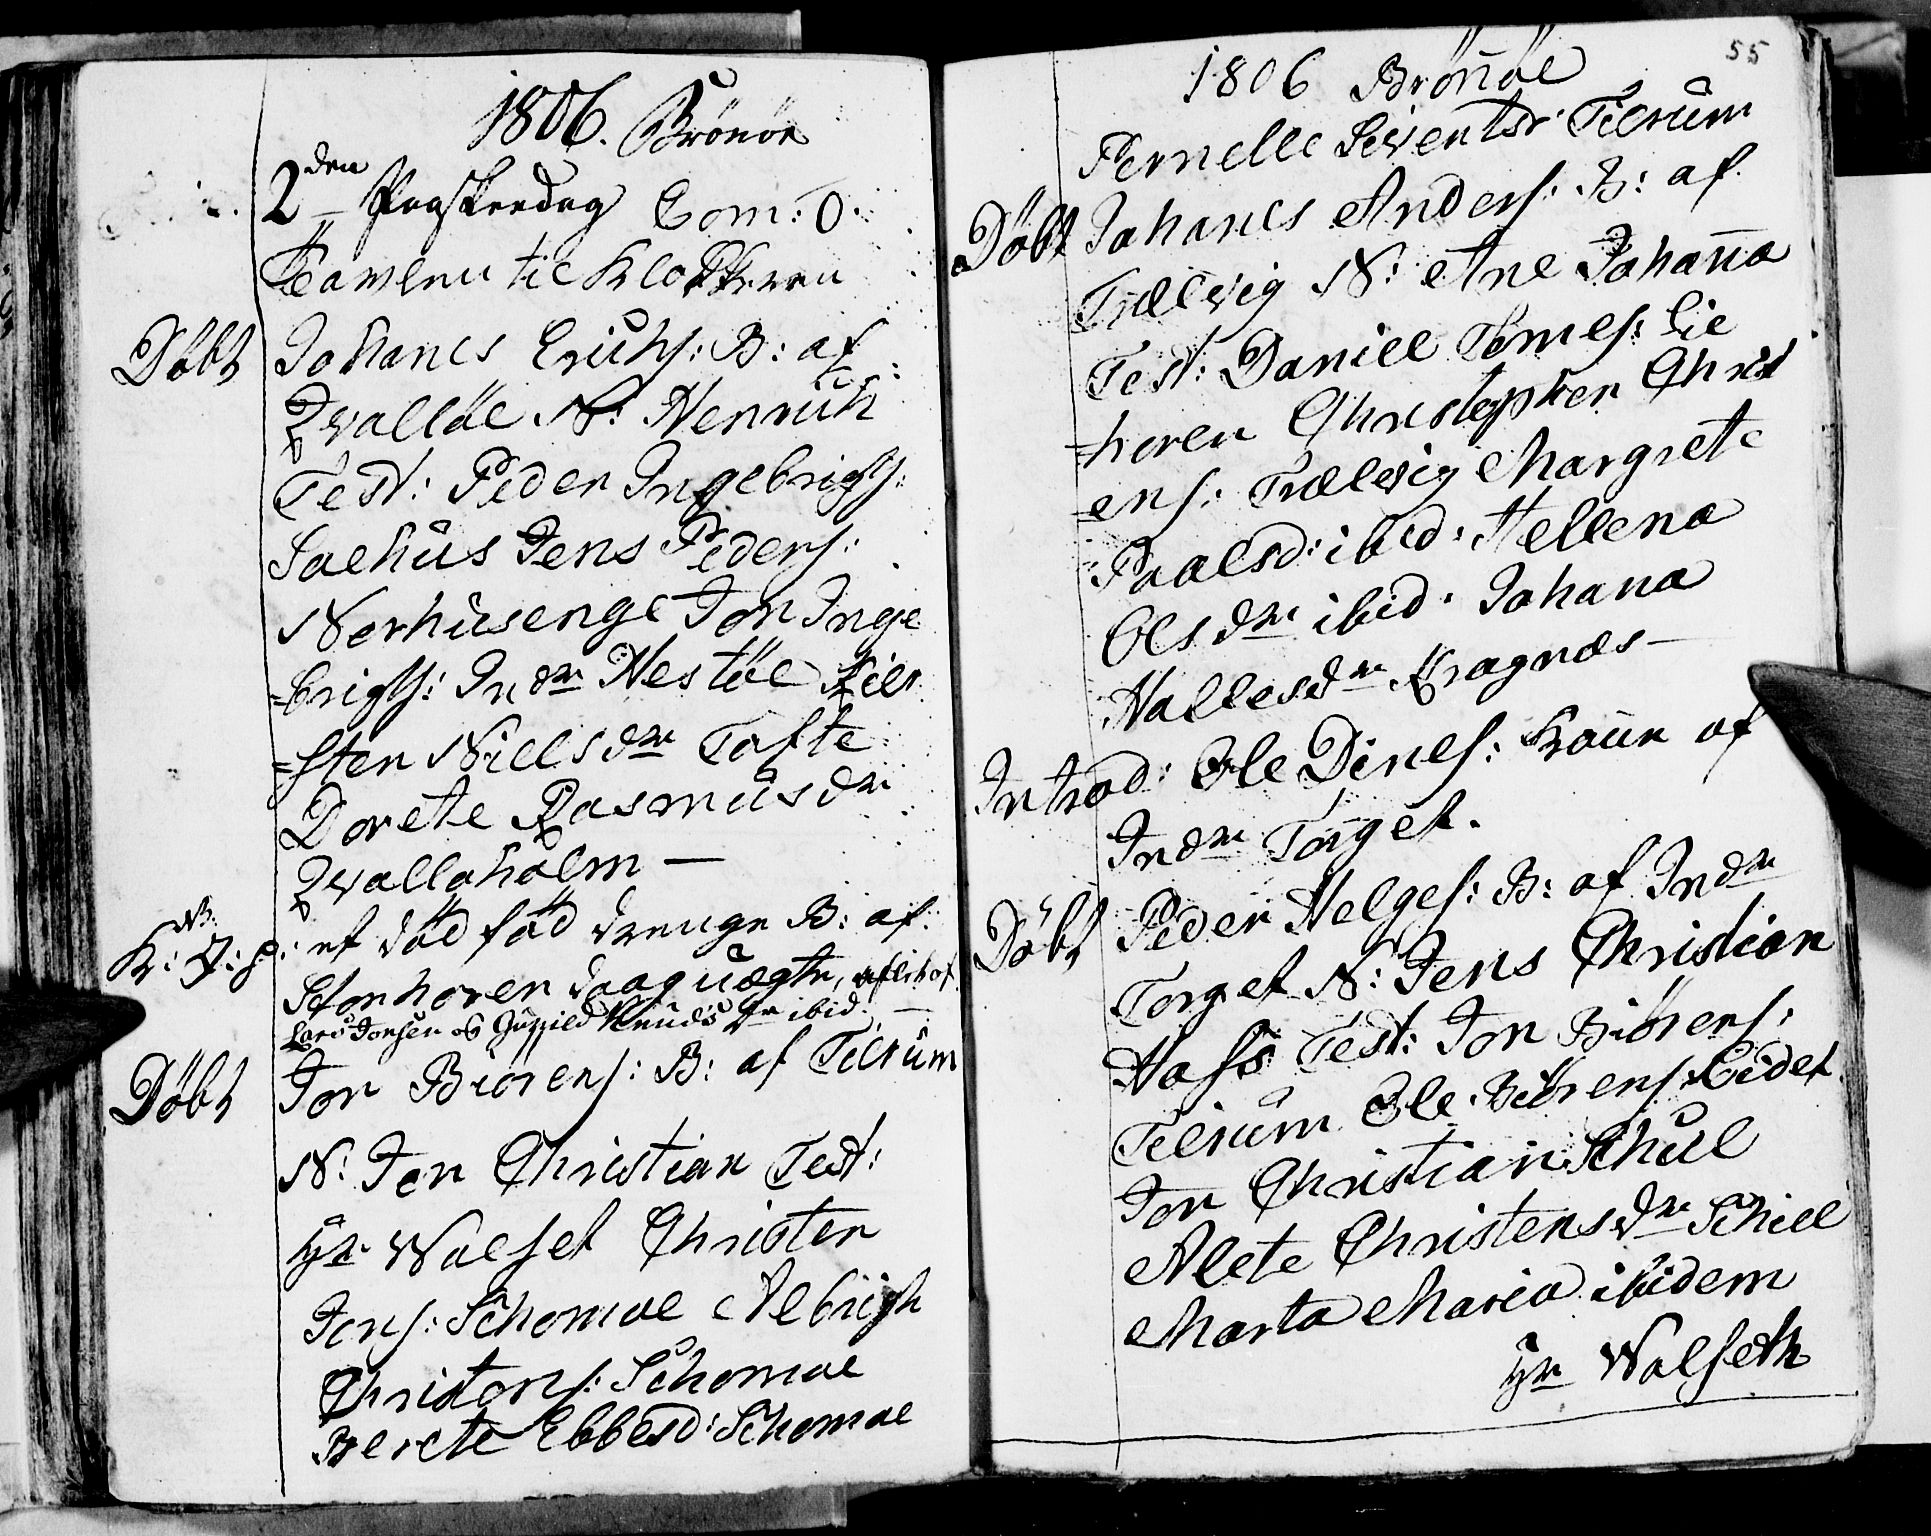 1806. Brönöe
2den Paaskedag Com: 0.
til Klokkeren
Döbt Johanes Erichs: B: af
Qvalöe N: Henrich
Test: Peder Ingebrigts:
Salhus Jens Peders:
Norhusenge Jon Inge
=brigts: Indr Hestöe Kier
=sten Nielsdr Tofte
Dorete Rasmusdr
Qvalloholm —
NB.
K: J: P: et död föd drenge B: af
Storhoren
Lars Jonsen og Knudsdr ibid. —
Döbt Jon Biörens: B: af Tilrum
N: Jon Christian Test:
Hr Walset Christen
Jens: Schomoe Albrigt
Christens: Schomoe
Berete Ebbesd: Schomoe
55
1806 Brönöe
Pernelle Siventsdr Tilrum
Döbt Johanes Anders: B: af
Trælvig N: Ane Johana
Test: Daniel Tomes: Lie
=horen Christopher Christ
=ens: Trælvig Margrete
Paalsd: ibid: Hellena
Olsdr ibid. Johana
Hallesdr Kragnæs —
Introd: Ole Dines: Kone af
Indr Torget.
Döbt Peder Helges: B: af Indr
Torget N: Jens Christian
Hass Test: Jon Biörens:
Tilrum Ole Biörens: Eidet
Jon Christian Schiel
Alete Christensdr Schiel
Marta Maria ibidem
Hr Walseth